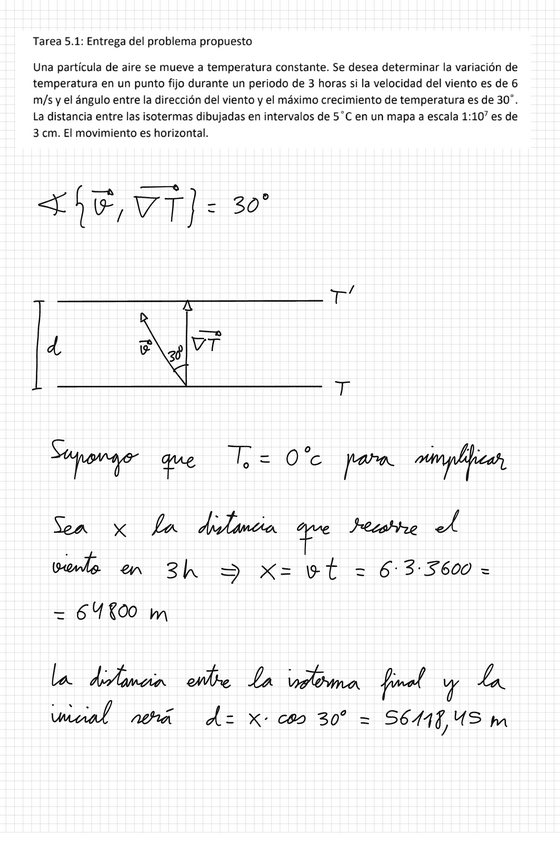 Tarea 5.1: Entrega del problema propuesto
Una partícula de aire se mueve a temperatura constante. Se desea determinar la variación de
temperatura en un punto fijo durante un periodo de 3 horas si la velocidad del viento es de 6
m/s y el ángulo entre la dirección del viento y el máximo crecimiento de temperatura es de 30˚.
La distancia entre las isotermas dibujadas en intervalos de 5˚C en un mapa a escala 1:10⁷ es de
3 cm. El movimiento es horizontal.
∢{v⃗, ∇T⃗} = 30°
T'
d
v⃗
30
∇T⃗
T
Supongo que T₀ = 0°C para simplificar
Sea x la distancia que recorre el
viento en 3h ⇒ x = v t = 6·3·3600 =
= 64800 m
La distancia entre la isoterma final y la
inicial será d = x· cos 30° = 56118,45 m